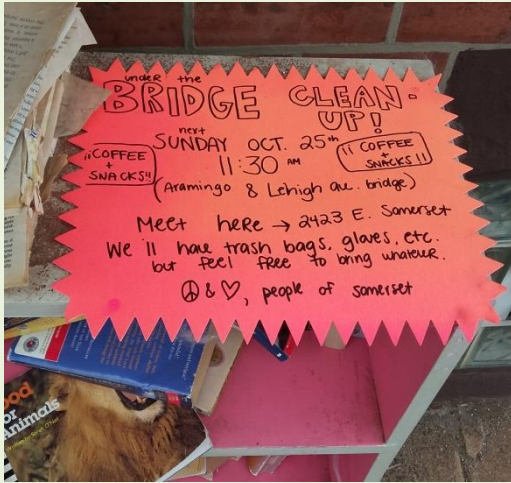 under the
BRIDGE CLEAN-
UP!
next
SUNDAY OCT. 25th
"COFFEE
+
SNACKS"
11:30 AM
"COFFEE
+
SNACKS!!
(Aramingo & Lehigh ave. bridge)
Meet here → 2423 E. Somerset
We'll have trash bags, gloves, etc.
but feel free to bring whatever.
☮ & ♡, people of somerset
Animals